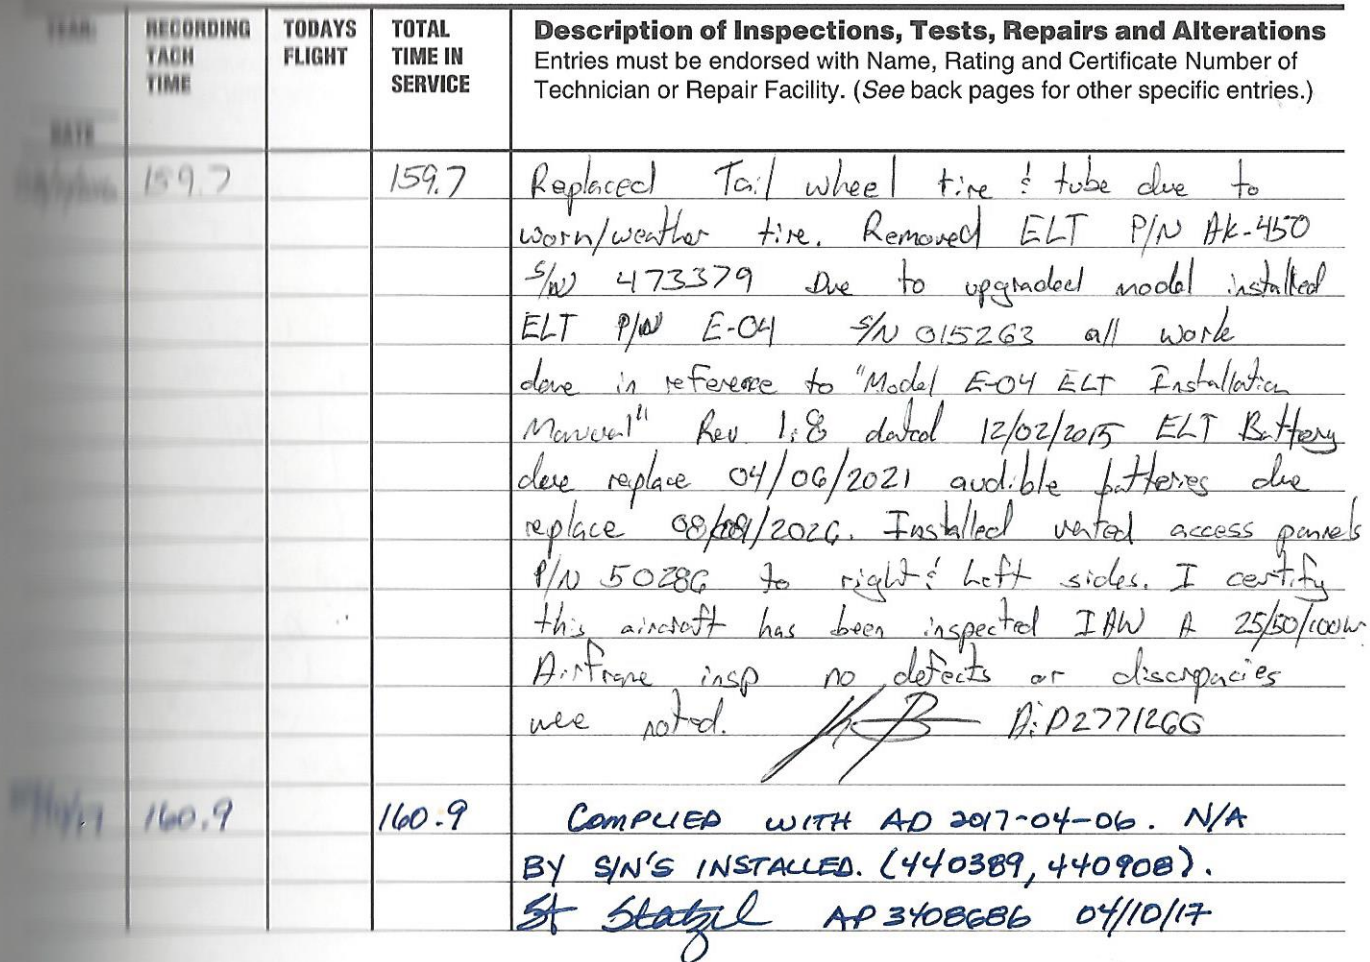 YEAR:
RECORDING
TACH
TIME
TODAYS
FLIGHT
TOTAL
TIME IN
SERVICE
Description of Inspections, Tests, Repairs and Alterations
Entries must be endorsed with Name, Rating and Certificate Number of
Technician or Repair Facility. (See back pages for other specific entries.)
DATE
159.7 159.7 Replaced Tail wheel tire & tube due to
worn/weather tire. Removed ELT P/N AK-450
S/N 473379 Due to upgraded model installed
ELT P/N E-04 S/N 015263 all work
done in reference to "Model E-04 ELT Installation
Manual" Rev 1.8 dated 12/02/2015 ELT Battery
due replace 04/06/2021 audible batteries due
replace Installed vented access pannels
P/N 50286 to right & Left sides. I certify
this aircraft has been inspected IAW A 25/50/100hr
Airframe insp no defects or discrepacies
were noted. A&P 2771266
160.9 160.9 COMPLIED WITH AD 2017-04-06. N/A
BY S/N'S INSTALLED. (440389, 440908).
AP 3408686 04/10/17